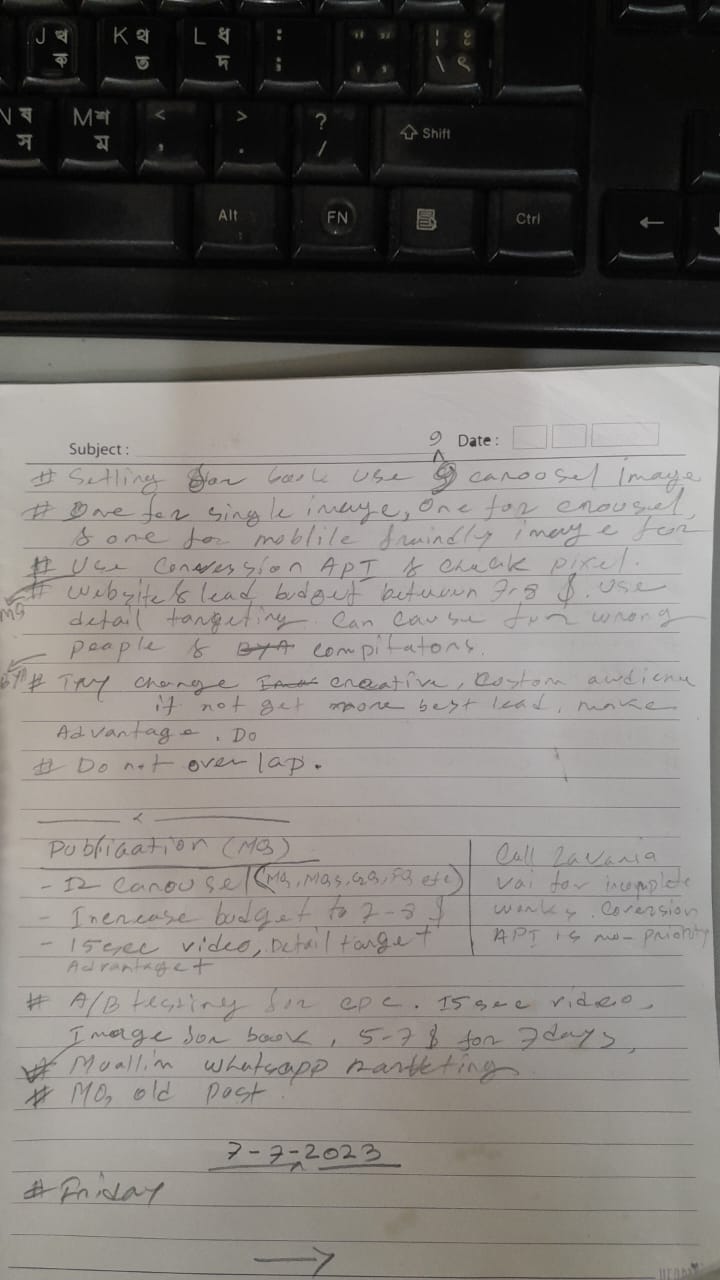 J থ খ K থ ত L ধ দ : ; " '
N ব স M শ ম < , > . ? / Shift
Alt FN Ctrl ←
Subject : 9 Date :
# Selling for book use 9 carousel image
# One for single image, One for crousel,
& one for moblile fraindly image for
# Use Conversion API & check pixel.
MQ # Website & lead budget between 7-8 $. Use
detail targeting. Can cause for wrong
people & compitators.
# Try change creative, Custom audience
if not get more best lead, make
Advantage. Do
# Do not overlap.
Publiaation (MQ)
- 12 Carousel (MQ, MQS, QS, etc)
- Increase budget to 7-8 $
- 15 sec video, Detail target
Advantaget
Call Zavaria
vai for incomplete
works. Corersion
API is no-priority
# A/B testing for cpc. 15 sec video,
Image for book, 5-7 $ for 7 days,
# Muallim whatsapp marketing
# MQ, old post
7-7-2023
# Friday
→